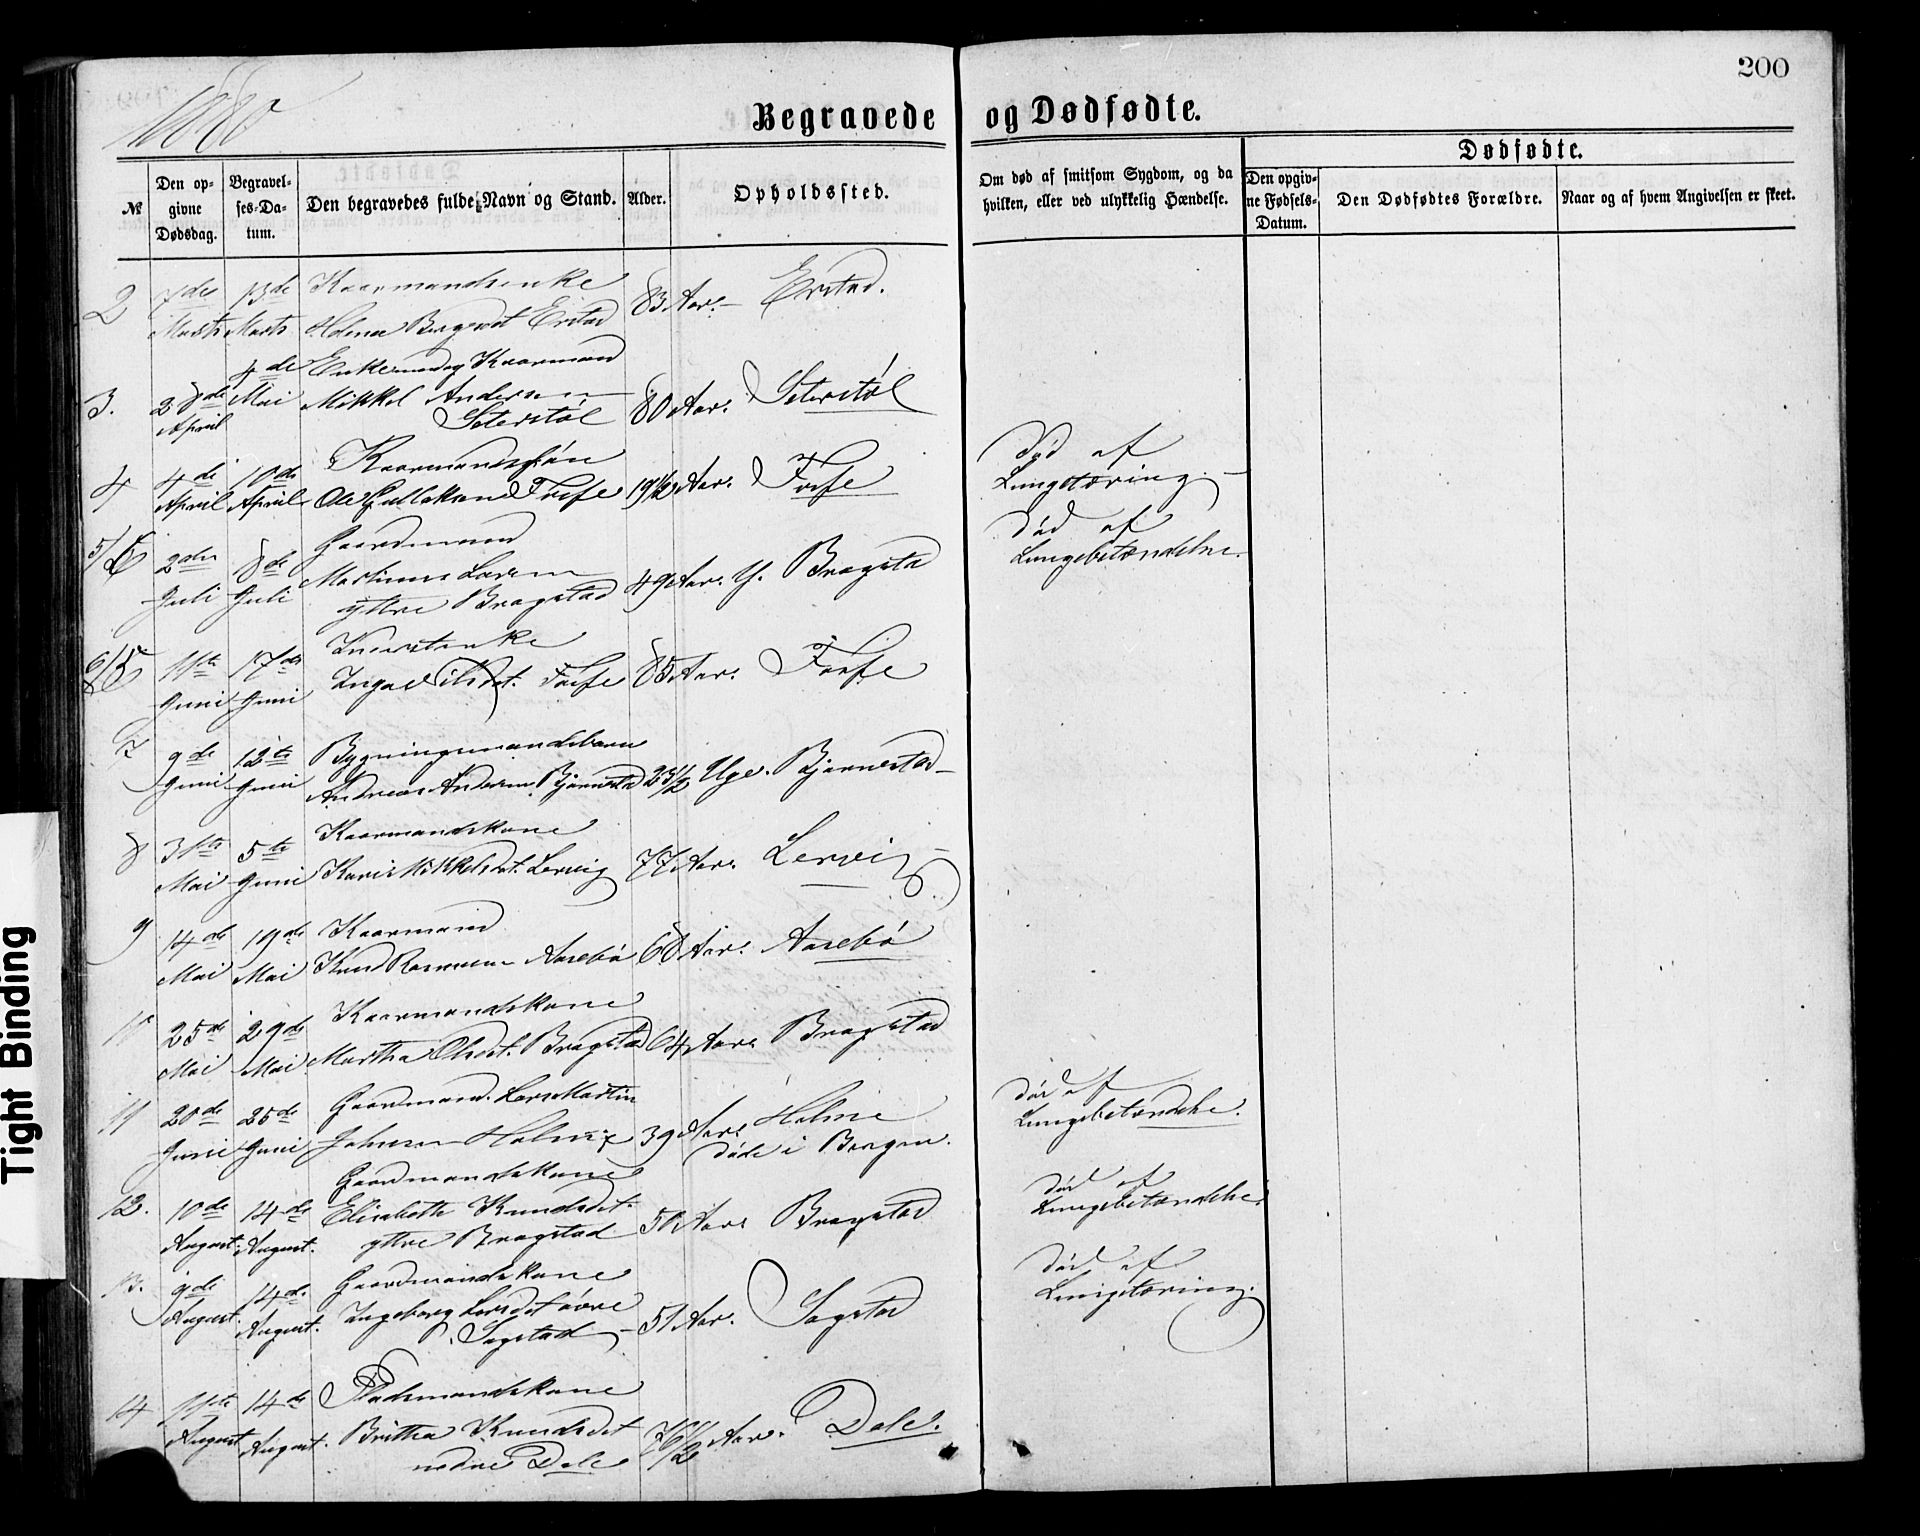 200
1880
Begravede og Dødfødte.
№
Den opgivne Dødsdag.
Begravelses-Datum.
Den begravedes fulde Navn og Stand.
Alder.
Opholdssted.
Om død af smitsom Sygdom, og da hvilken, eller ved ulykkelig Hændelse.
Dødfødte.
Den opgivne Fødsels-Datum.
Den Dødfødtes Forældre.
Naar og af hvem Angivelsen er skeet.
2 7de Marts 13de Marts Kaarmandsenke
Erstad 83 Aar. Erstad.
3. 28de April 4de Mai Enkemand og Kaarmand
Mikkel Andersen
Seterstøl 80 Aar. Seterstøl
4 4de April 10de April Kaarmandssøn
Ole Forse 19 1/2 Aar. Forse Død af
Lungetæring.
5/6 2den Juli 8de Juli Gaardmand
Martinus Larsen
yttre Bragstad 49 Aar. Y. Bragstad Død af
Lungebetændelse.
6/5 11te Juni 17de Juni
Forse 85 Aar. Forse
7 9de Juni 12te Juni Bygningsmandsbarn
Andreas Andersen Bjørnestad 23 1/2 Uge. Bjørnestad
8 31te Mai 5te Juni Kaarmandskone
Kari Mikkelsdt. Lervig 77 Aar. Lervig.
9 14de Mai 19de Mai Kaarmand
Knud Rasmussen Aasebø 68 Aar. Aasebø
10 25de Mai 29de Mai Kaarmandskone
Martha Olsdt. Bragstad 64 Aar. Bragstad
11 20de Juni 25de Juni Gaardmand Lars Martin
Johnsen Holme 39 Aar. Holme
døde i Bergen. Død af
Lungebetændelse.
12. 10de August. 14de August. Gaardmandskone
Elisabeth Knudsdt.
yttre Bragstad Aar. Bragstad Død af
Lungebetændelse.
13. 9de August. 14de August. Gaardmandskone
Ingeborg Larsdt øvre
Sagstad 51 Aar. Sagstad Død af
Lungetæring.
14 11te August 14de August. Pladsmandskone
Brittha Knudsdt
nedre Dale 76 1/2 Aar. Dale.
Tight Binding